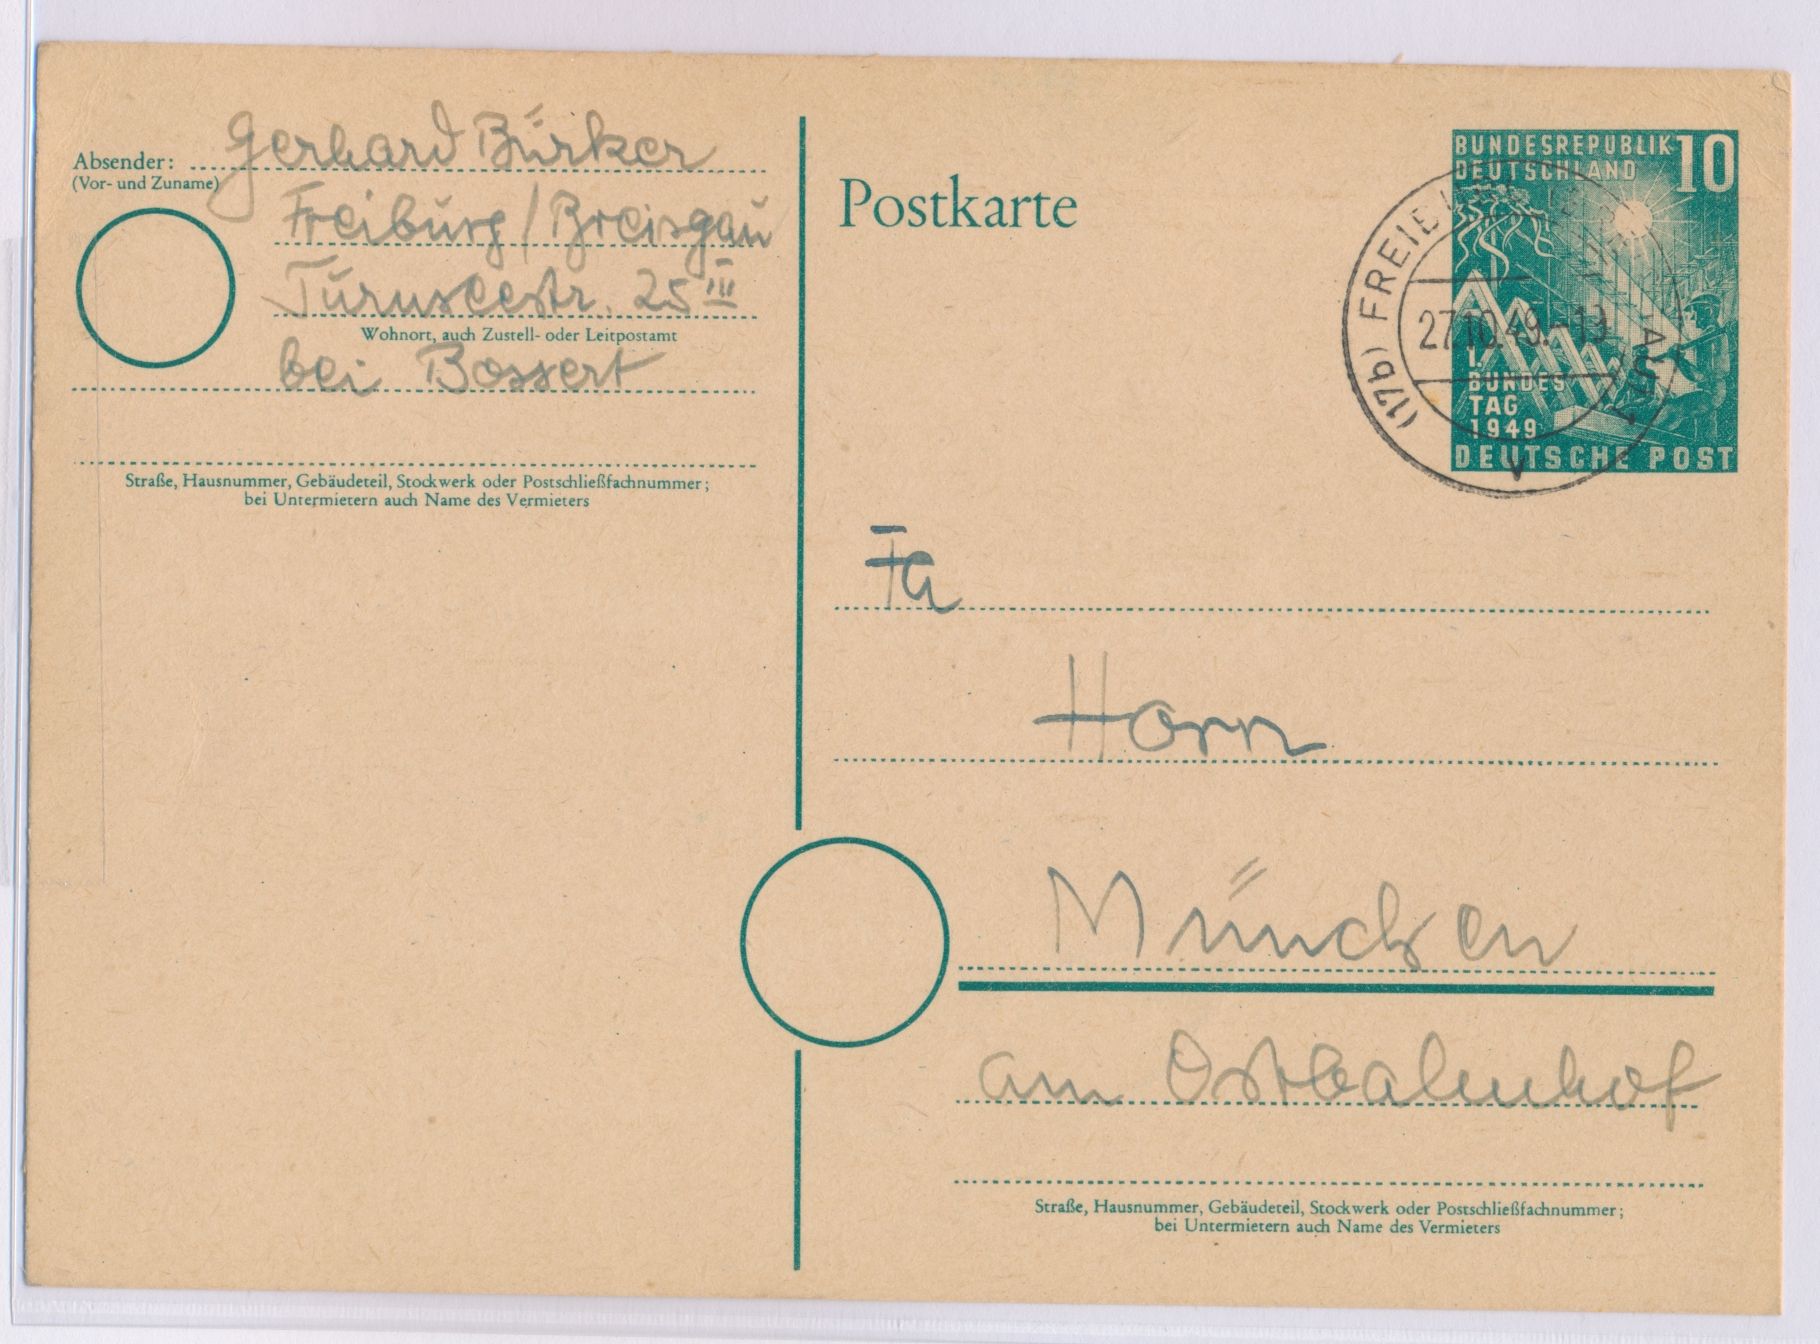 Absender: Gerhard Bürker
(Vor- und Zuname)
Freiburg / Breisgau
Turnseestr. 25 III
Wohnort, auch Zustell- oder Leitpostamt
bei Bossert
Straße, Hausnummer, Gebäudeteil, Stockwerk oder Postschließfachnummer;
bei Untermietern auch Name des Vermieters
Postkarte
BUNDESREPUBLIK 10
DEUTSCHLAND
1.
BUNDES
TAG
1949
DEUTSCHE POST
(17b) FREIBURG
27.10.49.-19
v
Fa
Horn
München
am Ostbahnhof
Straße, Hausnummer, Gebäudeteil, Stockwerk oder Postschließfachnummer;
bei Untermietern auch Name des Vermieters